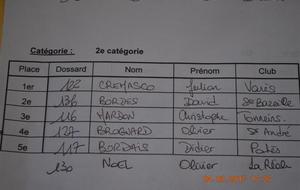 Catégorie : 2e catégorie
Place Dossard Nom Prénom Club
1er 122 CREMASCO Julian
2e 136 BORDES David St Bazeille
3e 116 MARDON Christophe Tonneins
4e 127 BROGNARD Olivier St André
5e 117 BORDAIS Didier
130 NOEL Olivier La Réole